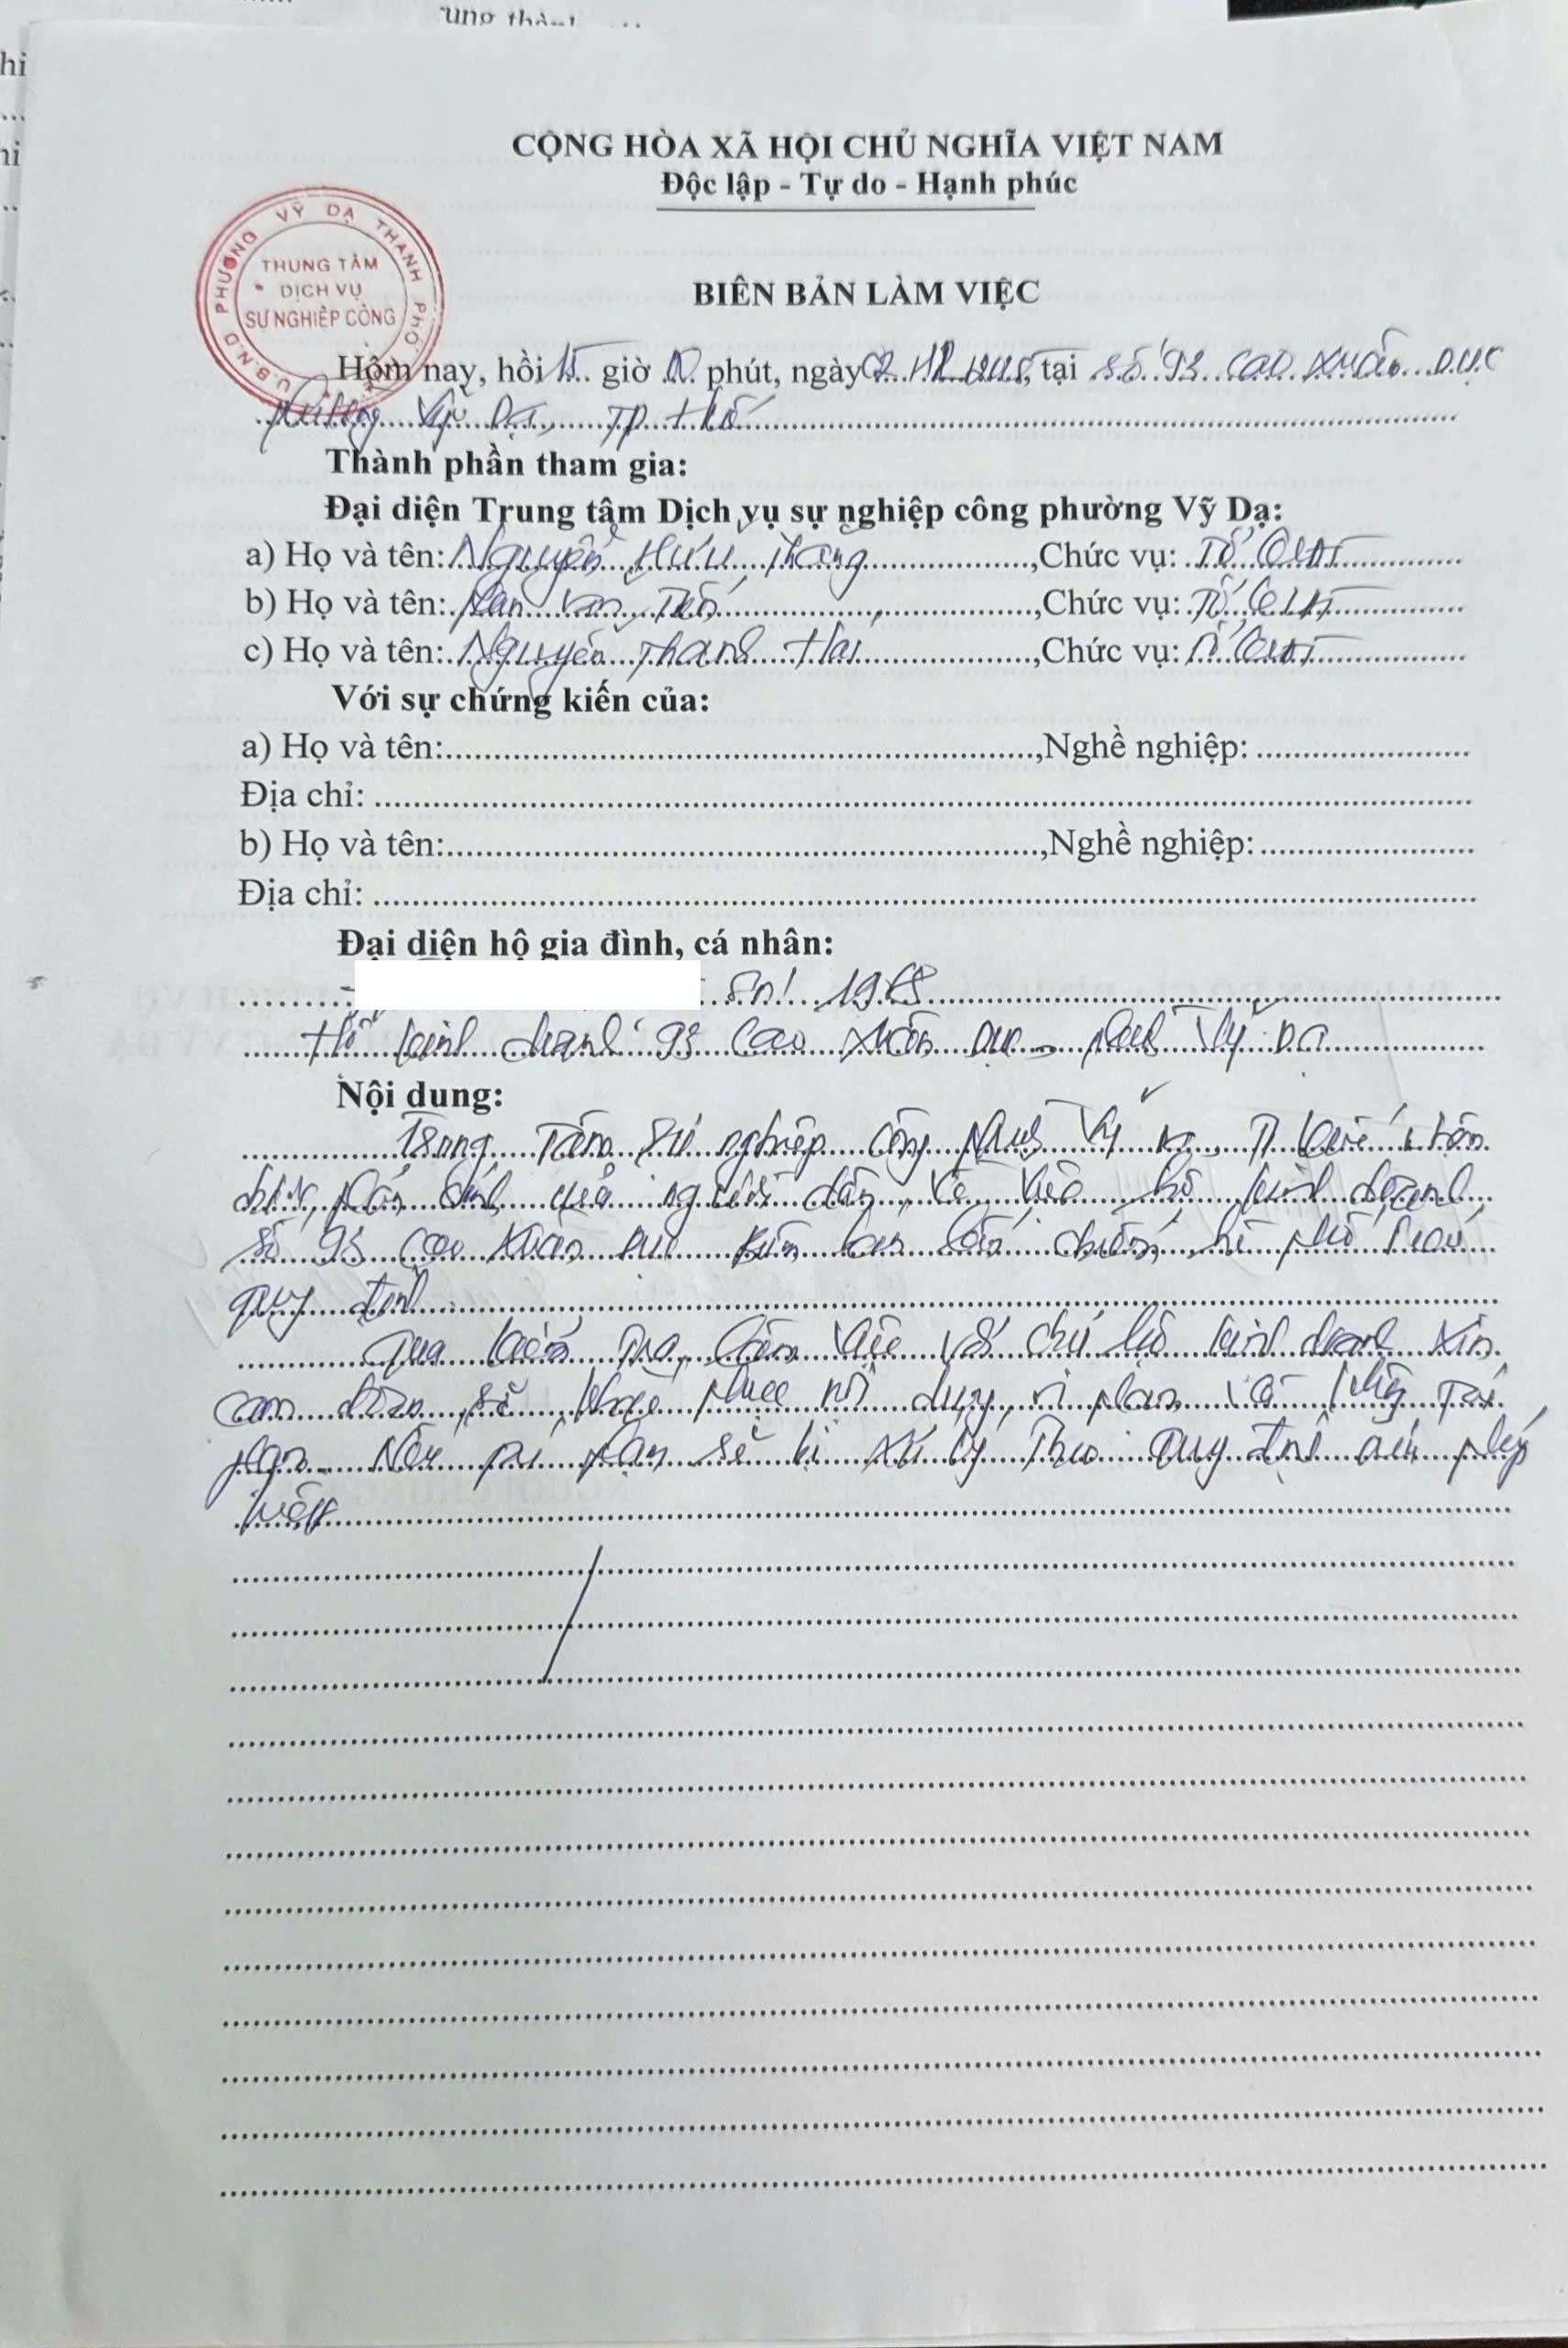 CỘNG HÒA XÃ HỘI CHỦ NGHĨA VIỆT NAM
Độc lập - Tự do - Hạnh phúc
U.B.N.D PHƯỜNG VỸ DẠ THÀNH PHỐ
THUNG TÂM
DỊCH VỤ
SỰ NGHIỆP CÔNG
BIÊN BẢN LÀM VIỆC
Hôm nay, hồi 15 giờ phút, ngày tại số 93 Cao Xuân Dục
phường Vỹ Dạ, TP Huế
Thành phần tham gia:
Đại diện Trung tâm Dịch vụ sự nghiệp công phường Vỹ Dạ:
a) Họ và tên: Nguyễn Hữu Thắng, Chức vụ: Tổ
b) Họ và tên: Văn, Chức vụ: Tổ
c) Họ và tên: Nguyễn Thanh Hải, Chức vụ: Tổ
Với sự chứng kiến của:
a) Họ và tên:, Nghề nghiệp:
Địa chỉ:
b) Họ và tên:, Nghề nghiệp:
Địa chỉ:
Đại diện hộ gia đình, cá nhân:
Sn: 19
Hộ kinh doanh 93 Cao Xuân Dục - Vỹ Dạ
Nội dung:
Trung Tâm Sự nghiệp công Vỹ
phản ánh của người dân về việc hộ kinh doanh
số 93 Cao Xuân Dục lấn chiếm hè phố
quy định.
Qua làm việc với chủ hộ kinh doanh xin
cam đoan sẽ khắc phục nội dung vi phạm và không tái
phạm. Nếu tái phạm sẽ bị xử lý theo quy định của pháp
luật